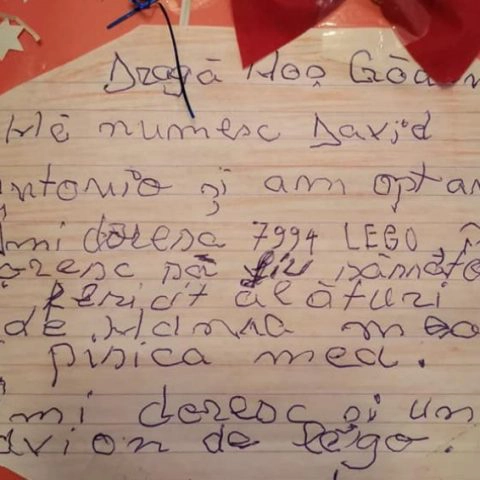 Dragă Moș Crăciun
Mă numesc David
Antonio și am opt ani
Îmi doresc 7994 LEGO, îmi
doresc să fiu sănătos
fericit alături
de Mama mea
pisica mea.
Îmi doresc și un
avion de lego.